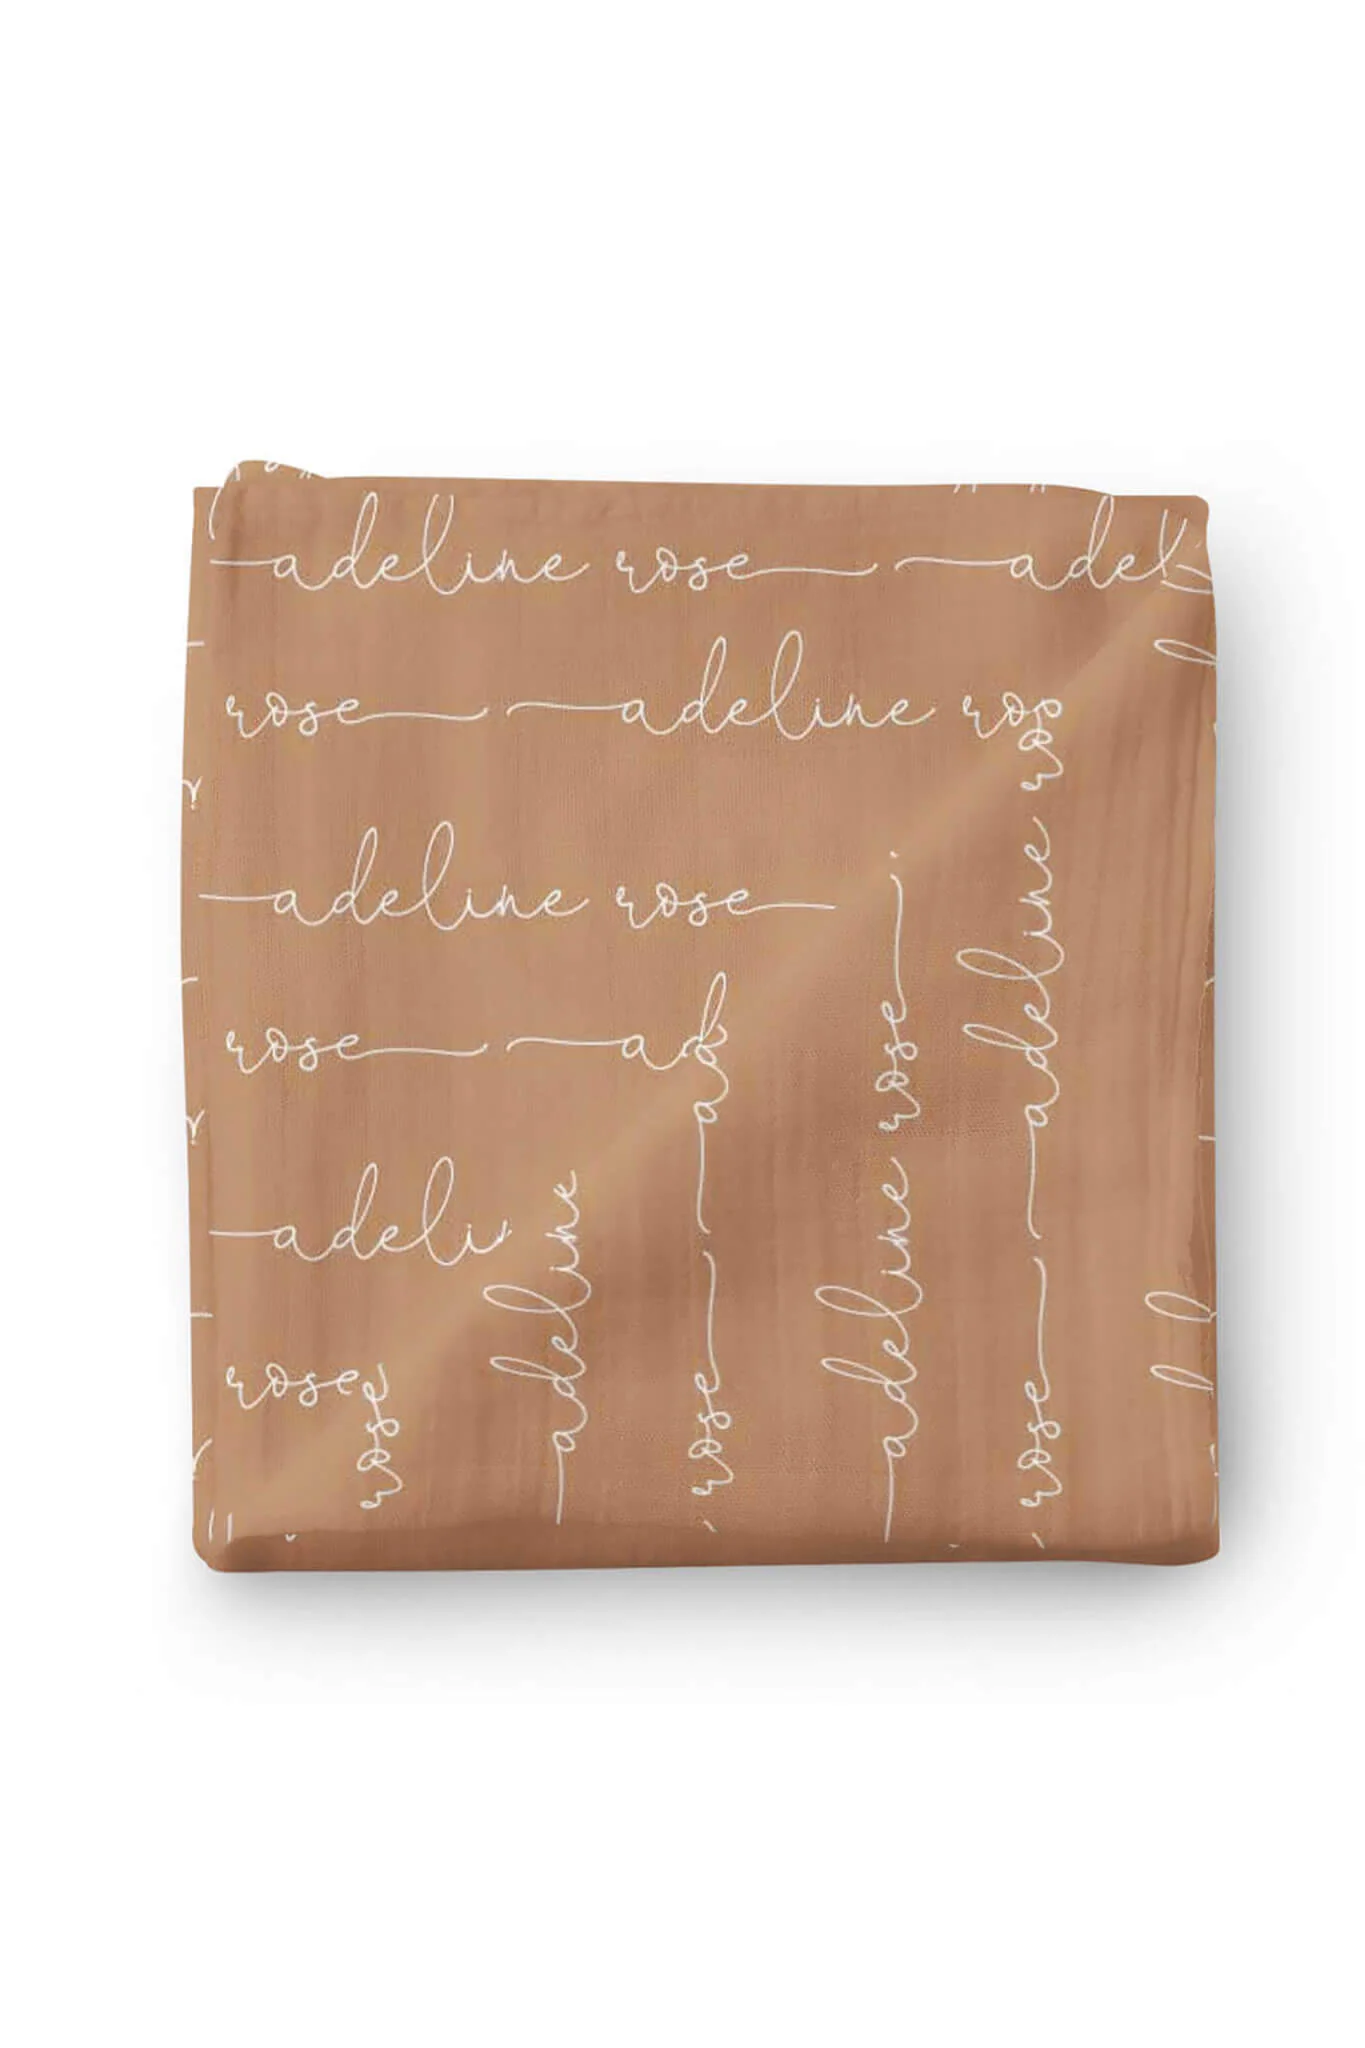 adeline rose adel
rose adeline ros
adeline rose
rose ad
adeli
rose
rose
adeline
rose ad
adeline rose
rose adeline ro